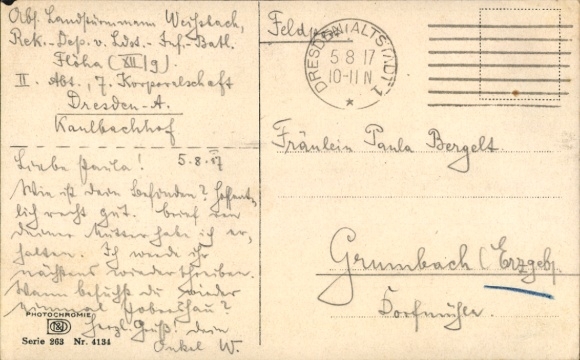 Abs. Landsturmmann Weißbach,
Rek.-Dep. v. Ldst.-Inf.-Batl.
Flöha (XII/9)
II. Abt., 7. Korporalschaft
Dresden-A.
Kaulbachhof
Feldpost
DRESDEN(ALTSTADT) 1
5 8 17
10-11 N
*
Fräulein Paula Bergelt
Grumbach (Erzgeb.
Dorfmühle.
Liebe Paula! 5.8.17
Wie ist dein Befinden? Hoffent-
lich recht gut. Brief von
deiner Mutter habe ich er-
halten. Ich werde ihr
nächstens wieder schreiben.
Wann besuchst du wieder
einmal Pobershau?
Herzl. Gruß! dein
Onkel W.
PHOTOCHROMIE
Serie 263 Nr. 4134